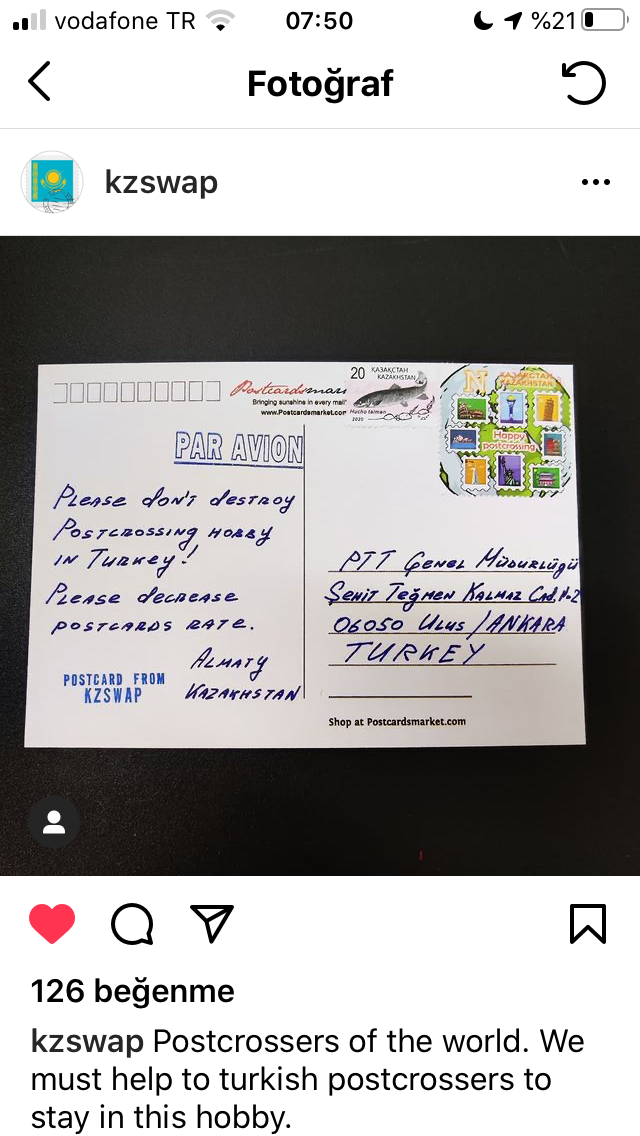 vodafone TR
07:50
%21
Fotoğraf
kzswap
Postcardsmar
Bringing sunshine in every mail
www.Postcardsmarket.com
20 ҚАЗАҚСТАН
KAZAKHSTAN
Hucho taimen
2020
N
ҚАЗАҚСТАН
KAZAKHSTAN
Happy
postcrossing
PAR AVION
PLEASE DON'T DESTROY
POSTCROSSING HOBBY
IN TURKEY!
PLEASE DECREASE
POSTCARDS RATE.
ALMATY
KAZAKHSTAN
POSTCARD FROM
KZSWAP
PTT GENEL MÜDÜRLÜĞÜ
ŞEHİT TEĞMEN KALMAZ CAD. N.2
06050 ULUS / ANKARA
TURKEY
Shop at Postcardsmarket.com
126 beğenme
kzswap Postcrossers of the world. We
must help to turkish postcrossers to
stay in this hobby.